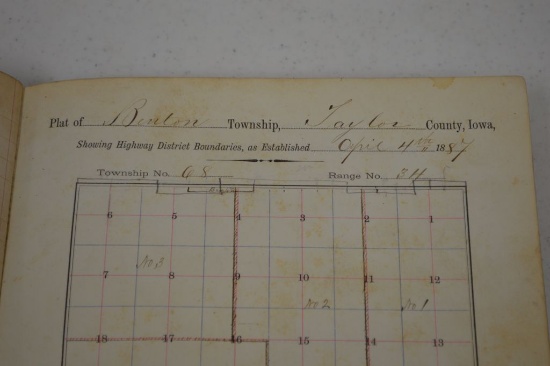 Plat of Benton Township, Taylor County, Iowa,
Showing Highway District Boundaries, as Established April 4th 1887
Township No. 68 Range No. 34
6 5 4 3 2 1
No 3
7 8 9 10 11 12
No 2 No 1
18 17 16 15 14 13